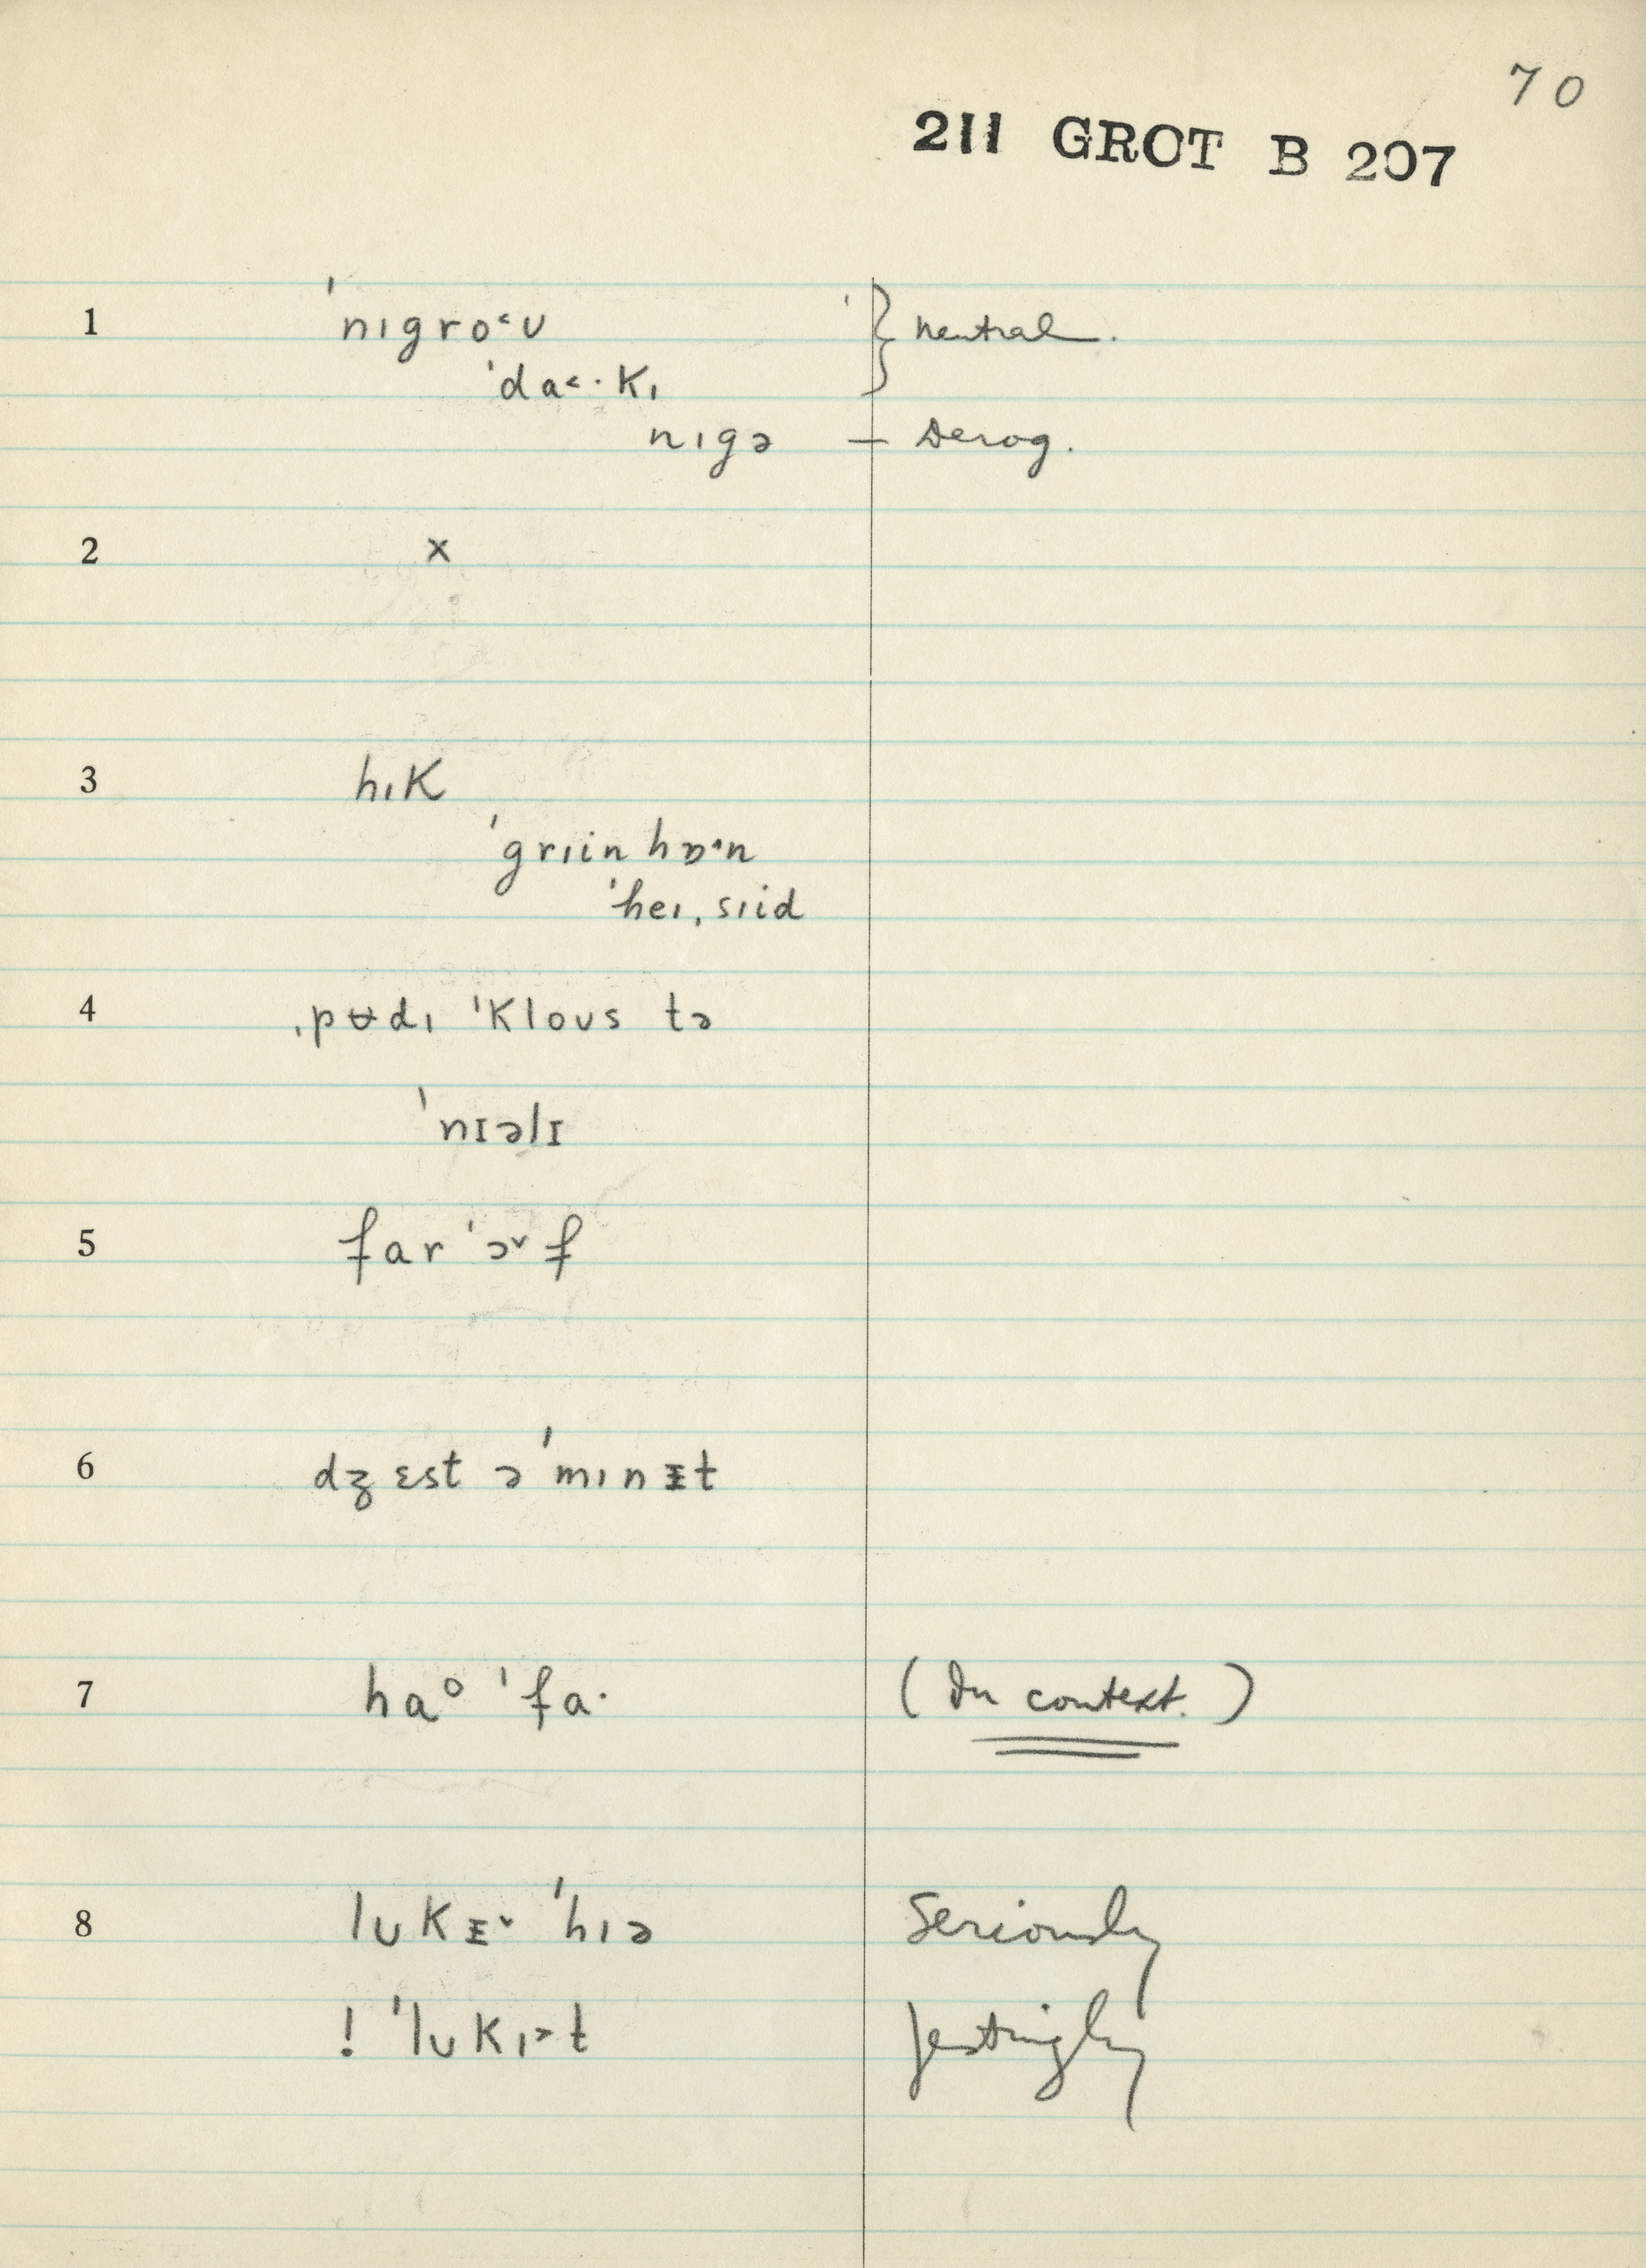 70
211 GROT B 207
1 ˈnɪgro˂ʊ } neutral.
ˈda˂·kɪ
nɪgə — Derog.
2 x
3 hɪk
ˈgrɪinhɒ·n
ˈheɪˌsɪid
4 ˌpʊ̵dɪ ˈkloʊs tə
ˈnɪəlɪ
5 far ˈɔ˅f
6 dʒɛst ə ˈmɪnɪ̵t
7 haᵒ ˈfa· (In context.)
8 lʊkɪ̵˅ ˈhɪə Seriously
! ˈlʊkɪ˃t Jestingly